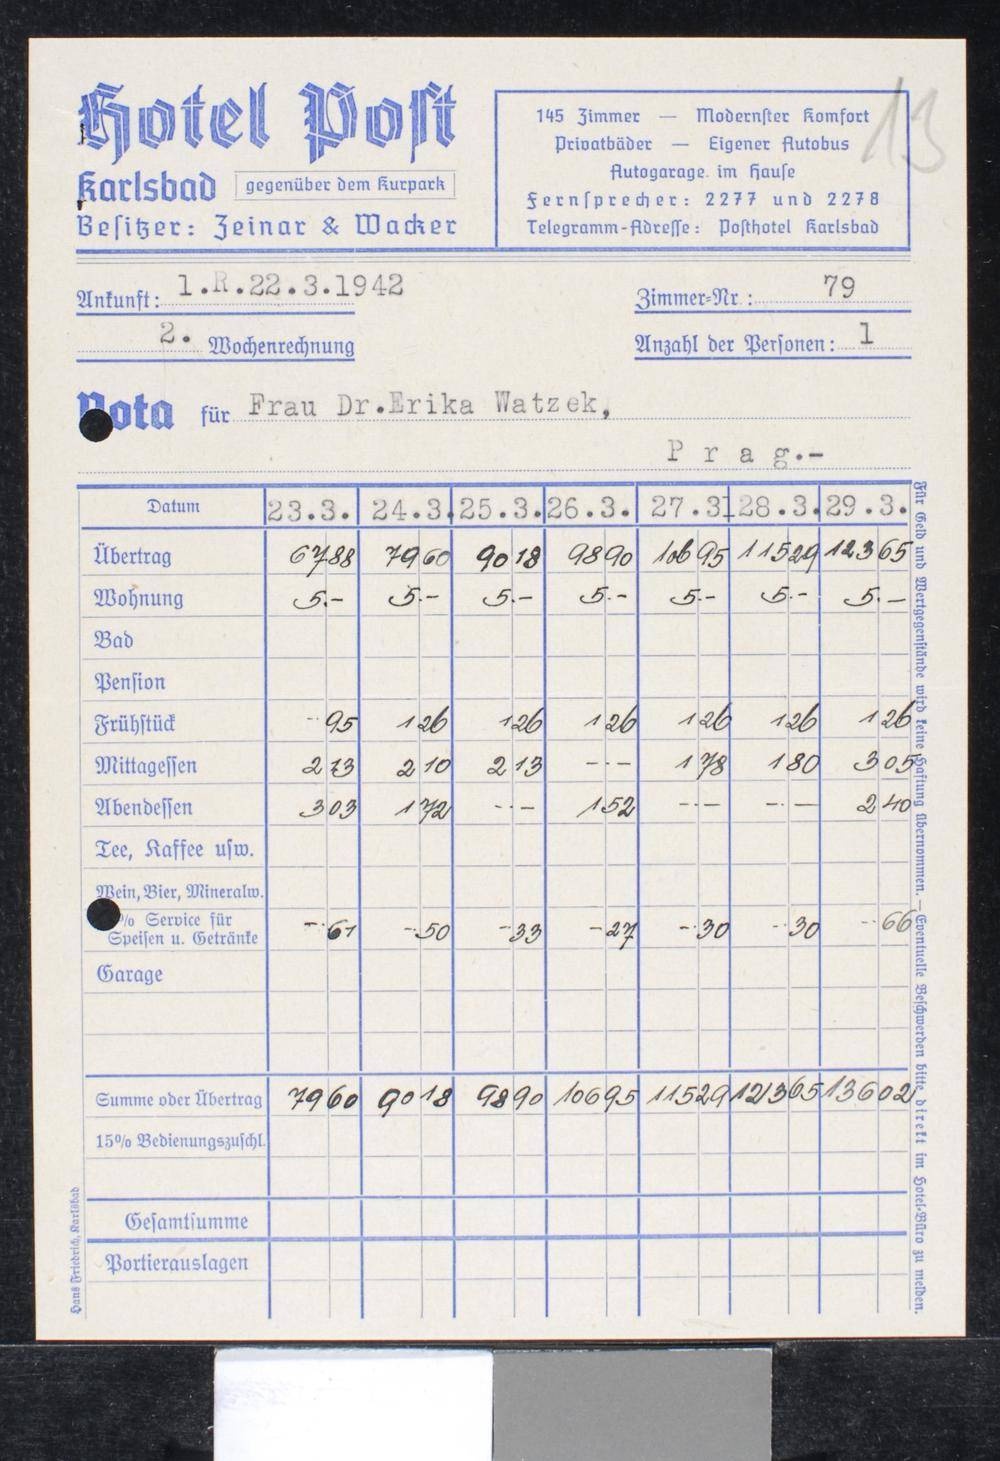 Hotel Post
Karlsbad gegenüber dem Kurpark
Besitzer: Zeinar & Wacker
145 Zimmer — Modernster Komfort
Privatbäder — Eigener Autobus
Autogarage im Hause
Fernsprecher: 2277 und 2278
Telegramm-Adresse: Posthotel Karlsbad
13
Ankunft: 1.R.22.3.1942
Zimmer-Nr.: 79
2. Wochenrechnung
Anzahl der Personen: 1
Nota für Frau Dr.Erika Watzek,
P r a g.-
Datum 23.3. 24.3. 25.3. 26.3. 27.3. 28.3. 29.3.
Übertrag 67 88 79 60 90 18 98 90 106 95 115 29 123 65
Wohnung 5.- 5.- 5.- 5.- 5.- 5.- 5.-
Bad
Pension
Frühstück -.95 1 26 1 26 1 26 1 26 1 26 1 26
Mittagessen 2 13 2 10 2 13 -.- 1 78 1 80 3 05
Abendessen 3 03 1 72 -.- 1 52 -.- -.- 2 40
Tee, Kaffee usw.
Wein, Bier, Mineralw.
% Service für
Speisen u. Getränke -.61 -.50 -.33 -.27 -.30 -.30 -.66
Garage
Summe oder Übertrag 79 60 90 18 98 90 106 95 115 29 123 65 136 02
15% Bedienungszuschl.
Gesamtsumme
Portierauslagen
Für Geld und Wertgegenstände wird keine Haftung übernommen. — Eventuelle Beschwerden bitte direkt im Hotel-Büro zu melden.
Hans Friedrich, Karlsbad